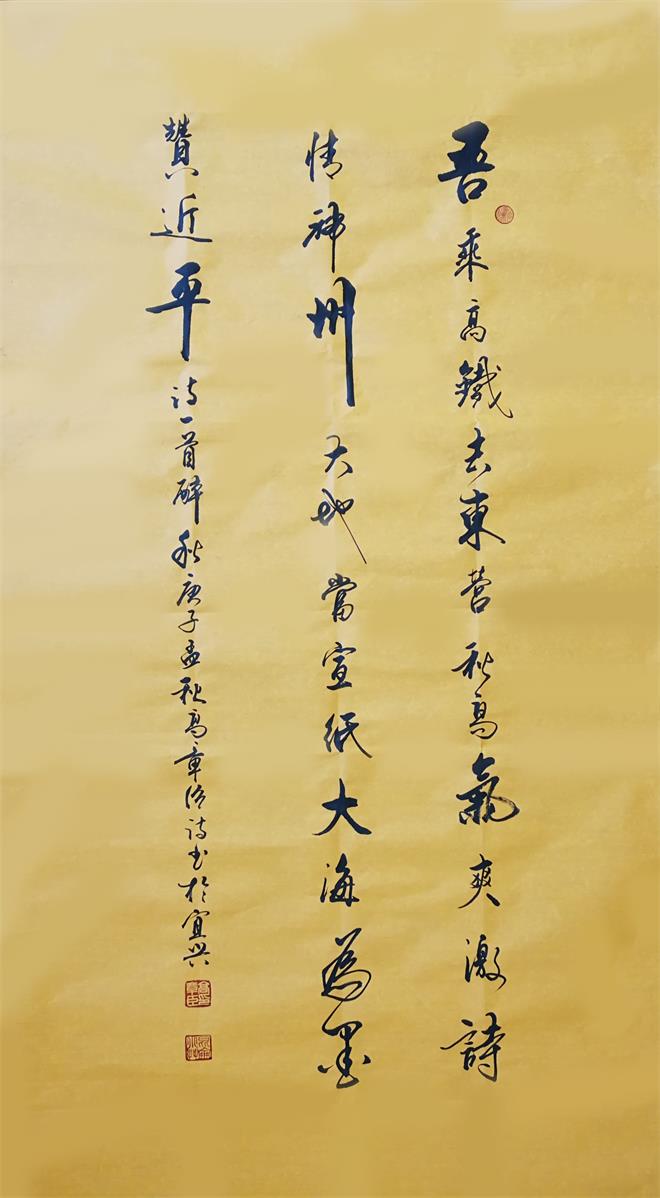 吾乘高鐵去東营秋高氣爽激詩
情神州大地當宣纸大海為墨
贊近平诗一首醉秋庚子孟秋高章法诗书於宜兴